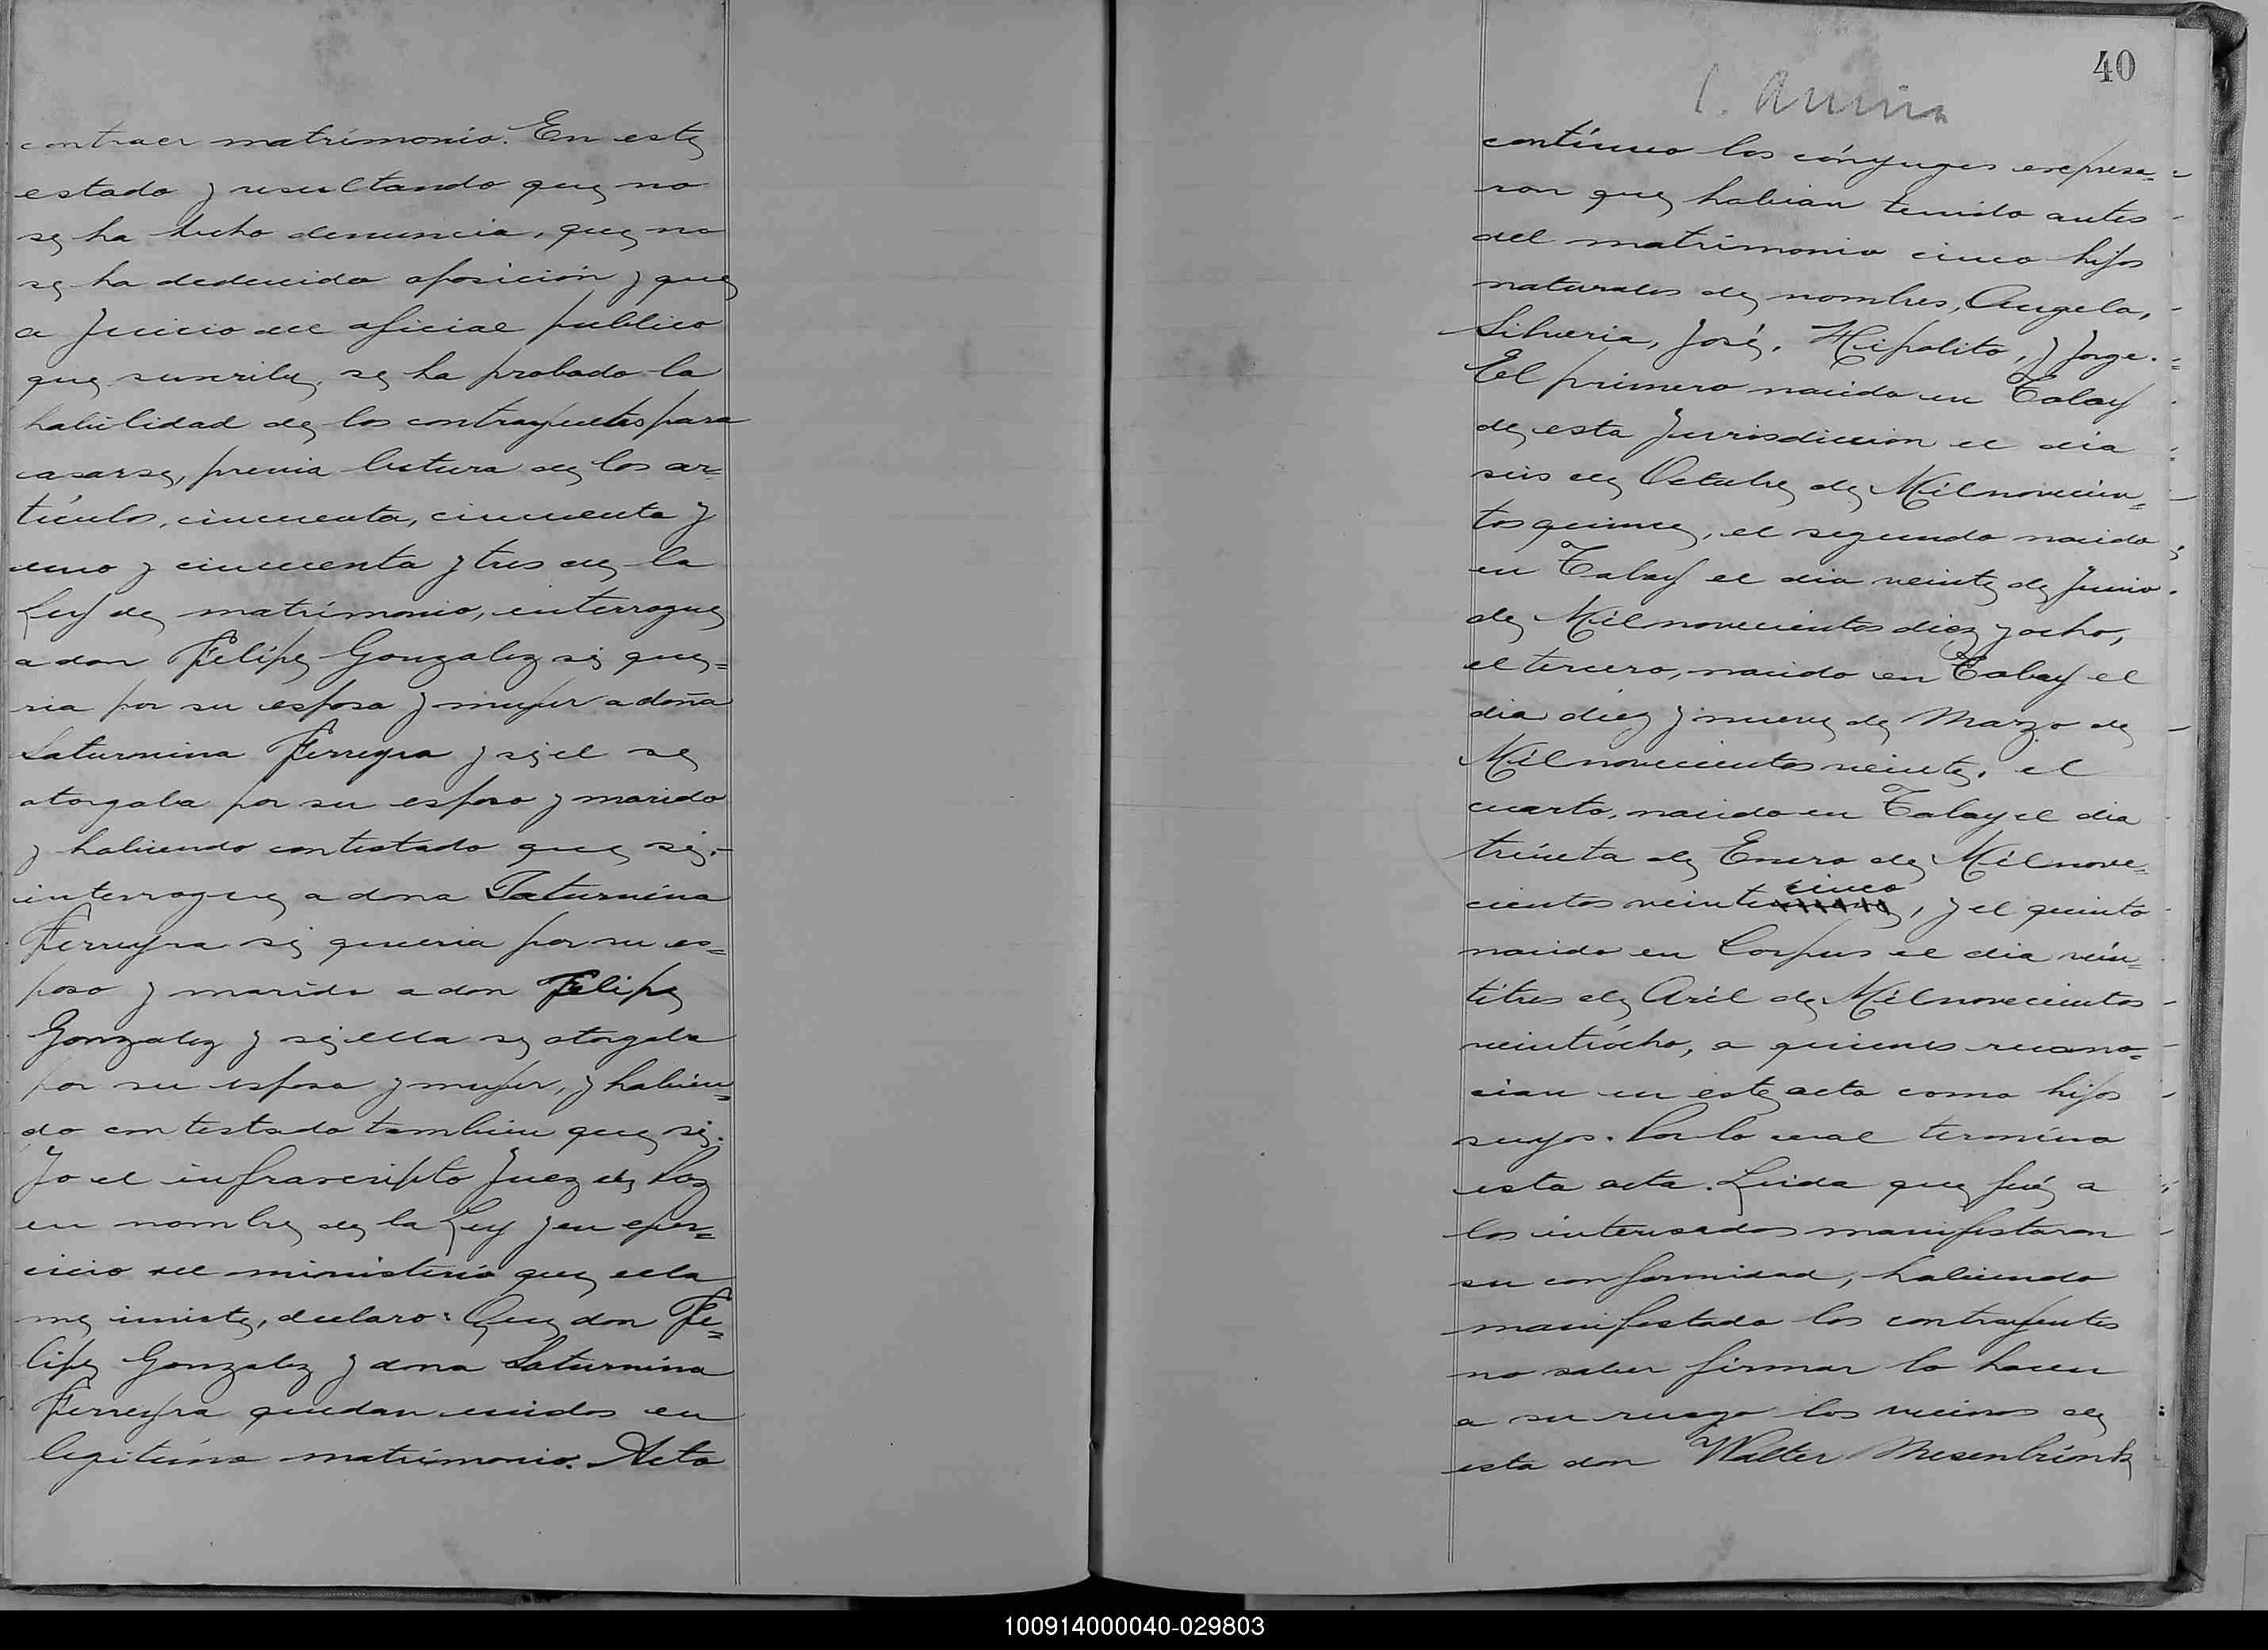 contraer matrimonio. En este
estado y resultando que no
se ha hecho denuncia, que no
se ha deducido oposición y que
a Juicio del oficial publico
que suscribe, se ha probado la
habilidad de los contrayentes para
casarse, previa lectura de los ar=
tículos, cincuenta, cincuenta y
uno y cincuenta y tres de la
Ley de matrimonio, interrogue
a don Felipe Gonzalez si que=
ria por su esposa y mujer a doña
Saturnina Ferreyra y si el se
otorgaba por su esposo y marido
y habiendo contestado que si.-
interrogue a dona Saturnina
Ferreyra si queria por su es=
poso y marido a don Felipe
Gonzalez y si ella se otorgaba
por su esposa y mujer, y habien=
do contestado tambien que si.
Yo el infrascripto Juez de Paz
en nombre de la Ley y en ejer=
cicio del ministerio que ella
me inviste, declaro: Que don Fe=
lipe Gonzalez y dona Saturnina
Ferreyra quedan unidos en
legitimo matrimonio. Acto
40
contínuo los cónyuges expresa=
ron que habian tenido antes
del matrimonio cinco hijos
naturales de nombres, Angela,
Silveria, José, Hipolito, y Jorge.
El primero nacido en Tabay
de esta Jurisdiccion el dia
seis de Octubre de Mil novecien=
tos quince, el segundo nacido
en Tabay el dia veinte de Junio
de Mil novecientos diez y ocho,
el tercero, nacido en Tabay el
dia diez y nueve de Marzo de
Mil novecientos veinte, el
cuarto, nacido en Tabay el dia
treinta de Enero de Mil nove=
cinco
cientos veinti, y el quinto
nacido en Corpus el dia vein=
titres de Aril de Mil novecientos
veintiocho, a quienes recono=
cian en este acto como hijos
suyos. Con lo cual termino
esta acta. Leida que fué a
los interesados manifestaron
su conformidad, habiendo
manifestado los contrayentes
no saber firmar lo hacen
a su ruego los vecinos de
esta don Walter Mesenbrink
100914000040-029803